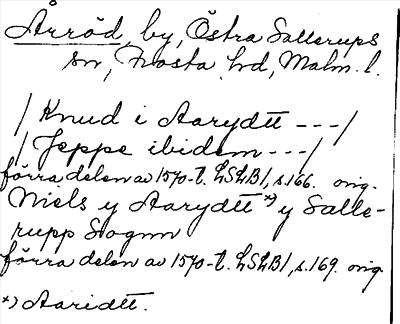 Årröd, by, Östra Sallerups
sn, Frosta hd, Malm. l.
/ Knud i Aarydtt --- /
/ Jeppe ibidem --- /
förra delen av 1570-t. LSLB1, s.166. orig.
Niels y Aarydtt *) y Salle-
rupp Sognn
förra delen av 1570-t. LSLB1, s.169. orig.
*) Aaridtt.